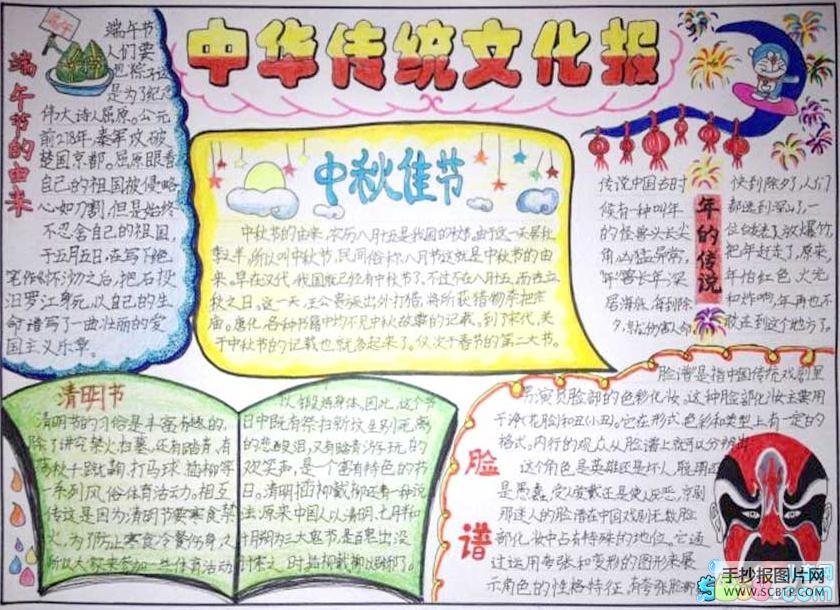 中华传统文化报
端午节的由来
端午
端午节
人们要
是为了纪念
伟大诗人屈原。公元
前278年,秦军攻破
楚国京都。屈原眼看
自己的祖国被侵略
心如刀割,但是始终
不忍舍自己的祖国,
于五月五日,在写下绝
笔作《怀沙》之后,抱石投
汨罗江身死,以自己的生
命谱写了一曲壮丽的爱
国主义乐章。
中秋佳节
中秋节的由来,农历八月十五是我国的中秋节。由于这一天居秋
季之半,所以叫中秋节,民间俗称八月节这就是中秋节的由
来。早在汉代,我国就已经有中秋节了,不过不在八月十五,而在立
秋之日。这一天,王公贵族出外打猎,将所获猎物祭祀宗
庙。唐代,各种书籍中均不见中秋故事的记载。到了宋代,关
于中秋节的记载也就多起来了。仅次于春节的第二大节。
年的传说
传说中国古时
候有一种叫年
的怪兽头长尖
角,凶猛异常,
年兽长年深
居海底,每到除
夕,就伤害人命
快到除夕了,人们
都逃到深山了,一
把年赶走了,原来
年怕红色、火光
和炸响,年再也不
敢在到这个地方了。
清明节
清明节的习俗是丰富有趣的,
除了讲究禁火、扫墓,还有踏青、荡
秋千、蹴鞠、打马球、插柳等
一系列风俗体育活动。相
传这是因为清明节要寒食禁
火,为了防止寒食冷餐伤身,
所以大家来参加一些体育活动
以锻炼身体。因此,这个节
日中既有祭扫新坟生别死离
的悲酸泪,又有踏青游玩的
欢笑声,是一个富有特色的节
日。清明插柳戴柳还有一种说
法:原来中国人以清明、七月半和
十月朔为三大鬼节,是百鬼出没
讨索之时
脸谱
脸谱是指中国传统戏剧里
演员脸部的色彩化妆,这种脸部化妆主要用
于净(花脸)和丑(小丑)。它在形式、色彩和类型上有一定的
格式。内行的观众从脸谱上就可以分辨出
这个角色是英雄还是坏人,聪明还
是愚蠢,受人爱戴还是使人厌恶,京剧
那迷人的脸谱在中国戏剧无数脸
部化妆中占有特殊的地位。它通
过运用夸张和变形的图形来展
示角色的性格特征,有夸张脸部
手抄报图片网
WWW.SCBTP.COM